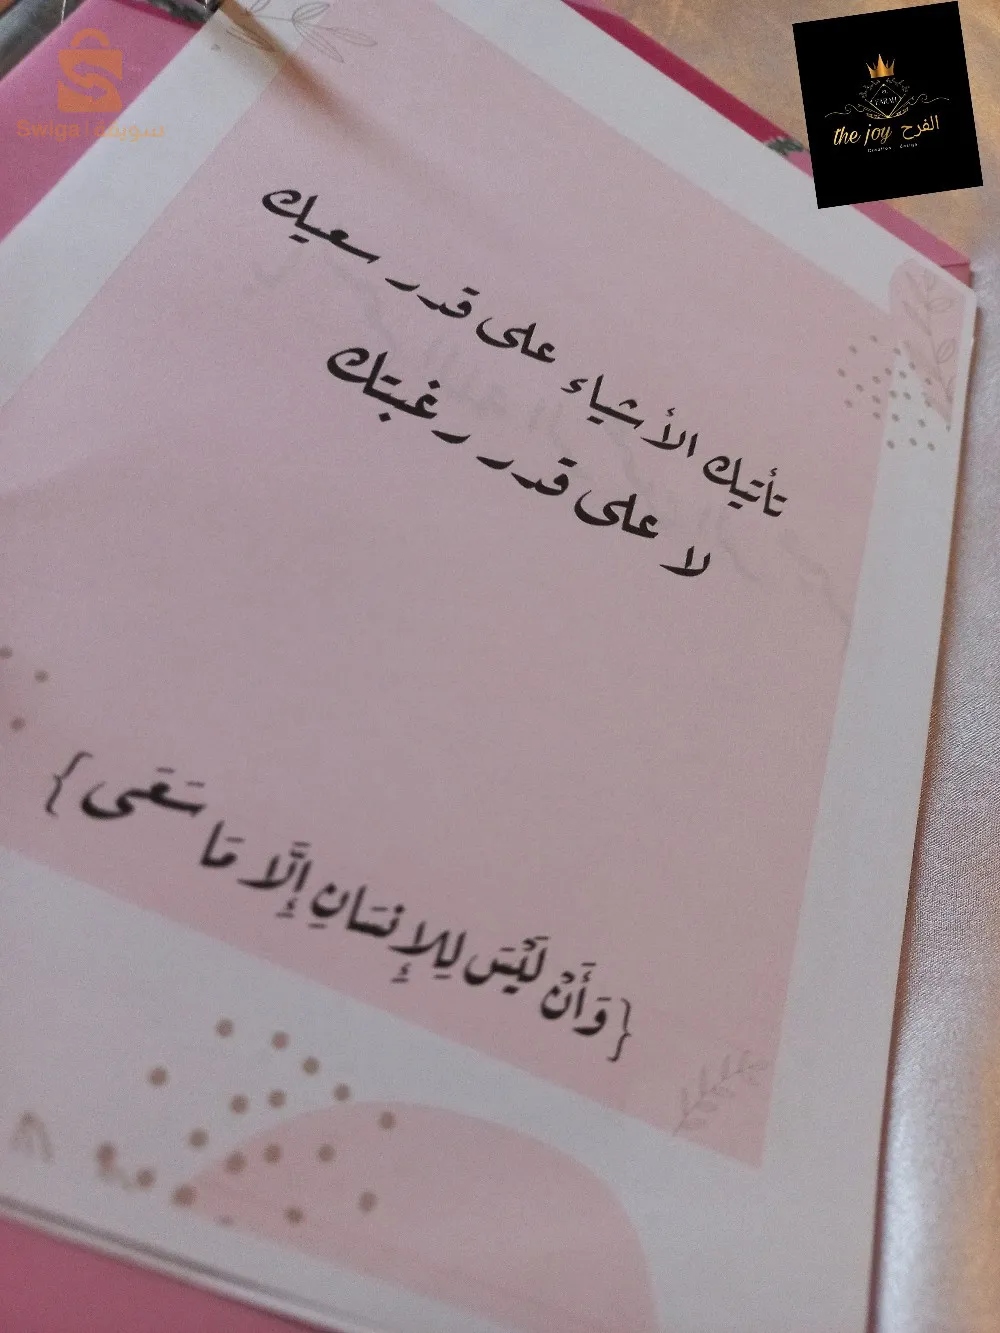 Swiga | سويقة
the joy الفرح
تأتيك الأشياء على قدر سعيك
لا على قدر رغبتك
{وَأَنْ لَيْسَ لِلإِنسَانِ إِلَّا مَا سَعَى}